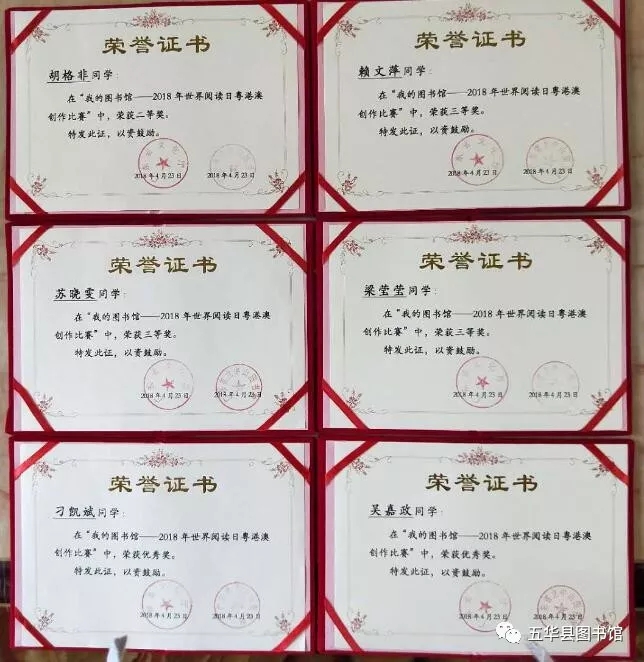 荣誉证书
胡格非同学：
在“我的图书馆——2018年世界阅读日粤港澳
创作比赛”中，荣获二等奖。
特发此证，以资鼓励。
2018年4月23日
2018年4月23日
荣誉证书
赖文萍同学：
在“我的图书馆——2018年世界阅读日粤港澳
创作比赛”中，荣获三等奖。
特发此证，以资鼓励。
2018年4月23日
2018年4月23日
荣誉证书
苏晓雯同学：
在“我的图书馆——2018年世界阅读日粤港澳
创作比赛”中，荣获三等奖。
特发此证，以资鼓励。
2018年4月23日
2018年4月23日
荣誉证书
梁莹莹同学：
在“我的图书馆——2018年世界阅读日粤港澳
创作比赛”中，荣获三等奖。
特发此证，以资鼓励。
2018年4月23日
2018年4月23日
荣誉证书
刁凯斌同学：
在“我的图书馆——2018年世界阅读日粤港澳
创作比赛”中，荣获优秀奖。
特发此证，以资鼓励。
2018年4月23日
2018年4月23日
荣誉证书
吴嘉政同学：
在“我的图书馆——2018年世界阅读日粤港澳
创作比赛”中，荣获优秀奖。
特发此证，以资鼓励。
2018年4月23日
2018年4月23日
五华县图书馆